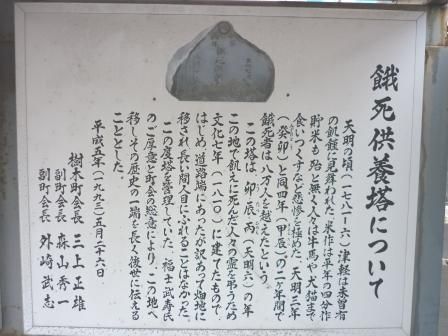 餓死供養塔について
天明の頃(一七八一-六)津軽は未曾有
の飢饉に見舞われた。米作は平年の四分作
貯米も殆ど無く人々は牛馬や犬猫まで
食いつくすなど惨状を極めた。天明三年
(癸卯)と同四年(甲辰)の二ヶ年間で
餓死者は八万人を越えたという。
この塔は、卯、辰、丙(天明六)の年
この地で飢えに死んだ人々の霊を弔うため
文化七年(一八一〇)に建てたもので、
はじめ道路端にあったが訳あって畑地に
移され長い間人目にふれることはなかった。
この度塔を管理していた、福士武寿氏
のご厚意と町会の総意により、この地へ
移しその歴史の一端を長く後世に伝える
こととした。
平成五年(一九九三)五月二十六日
樹木町会長 三上正雄
副町会長 森山秀一
副町会長 外崎武志